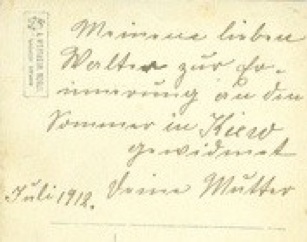 Meinene lieben
Walter zur Er-
innerung an den
Sommer in Kiew
gewidmet
Juli 1912. Deine Mutter